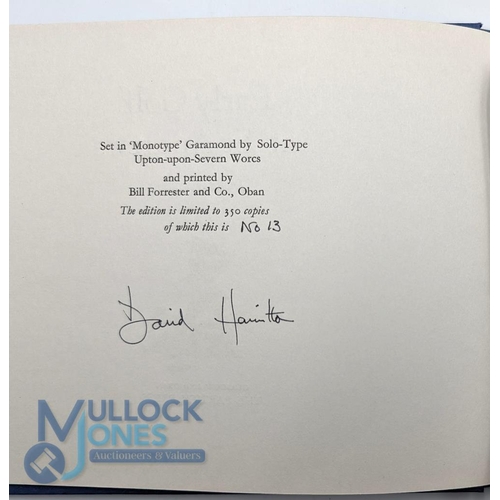 Set in 'Monotype' Garamond by Solo-Type
Upton-upon-Severn Worcs
and printed by
Bill Forrester and Co., Oban
The edition is limited to 350 copies
of which this is No 13
David Hamilton
MULLOCK
JONES
Auctioneers & Valuers